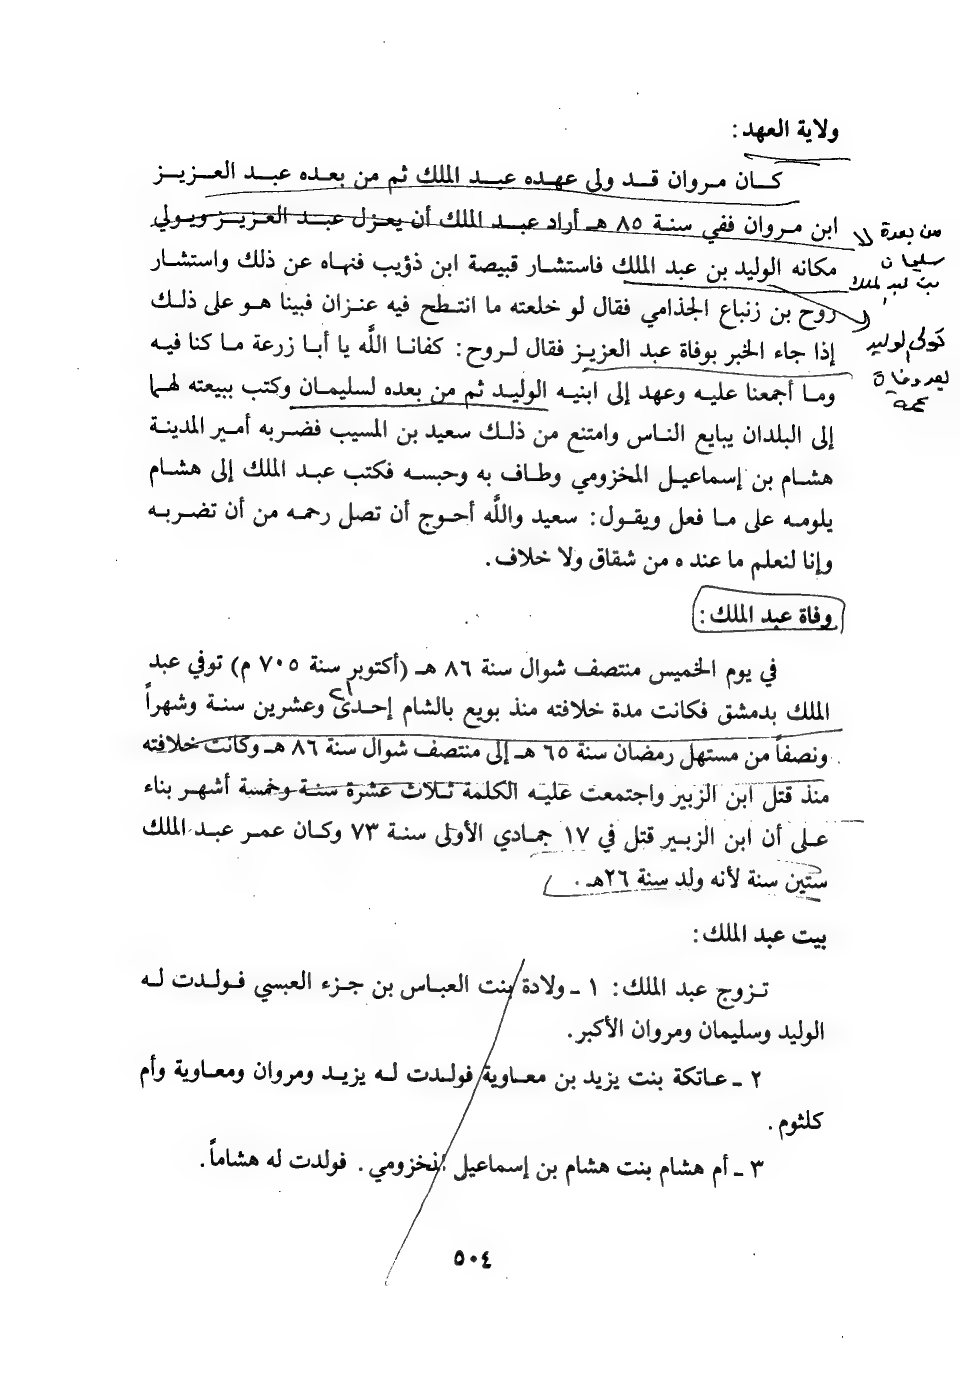 ولاية العهد :
كان مروان قد ولى عهده عبد الملك ثم من بعده عبد العزيز
ابن مروان ففي سنة ٨٥ هـ أراد عبد الملك أن يعزل عبد العزيز ويولي
مكانه الوليد بن عبد الملك فاستشار قبيصة ابن ذؤيب فنهاه عن ذلك واستشار
روح بن زنباع الجذامي فقال لو خلعته ما انتطح فيه عنزان فبينا هو على ذلك
إذا جاء الخبر بوفاة عبد العزيز فقال لروح : كفانا اللَّه يا أبا زرعة ما كنا فيه
وما أجمعنا عليه وعهد إلى ابنيه الوليد ثم من بعده لسليمان وكتب ببيعته لهما
إلى البلدان يبايع الناس وامتنع من ذلك سعيد بن المسيب فضربه أمير المدينة
هشام بن إسماعيل المخزومي وطاف به وحبسه فكتب عبد الملك إلى هشام
يلومه على ما فعل ويقول : سعيد واللَّه أحوج أن تصل رحمه من أن تضربه
وإنا لنعلم ما عنده من شقاق ولا خلاف .
من بعدة
سليمان
بن عبد الملك
تولى الوليد
بعد وفاة
عمه
وفاة عبد الملك :
في يوم الخميس منتصف شوال سنة ٨٦ هـ (أكتوبر سنة ٧٠٥ م) توفي عبد
الملك بدمشق فكانت مدة خلافته منذ بويع بالشام إحدى وعشرين سنة وشهراً
ونصفاً من مستهل رمضان سنة ٦٥ هـ إلى منتصف شوال سنة ٨٦ هـ وكانت خلافته
منذ قتل ابن الزبير واجتمعت عليه الكلمة ثلاث عشرة سنة وخمسة أشهر بناء
على أن ابن الزبير قتل في ١٧ جمادي الأولى سنة ٧٣ وكان عمر عبد الملك
ستين سنة لأنه ولد سنة ٢٦هـ .
بيت عبد الملك :
تزوج عبد الملك : ١ ـ ولادة بنت العباس بن جزء العبسي فولدت له
الوليد وسليمان ومروان الأكبر .
٢ ـ عاتكة بنت يزيد بن معاوية فولدت له يزيد ومروان ومعاوية وأم
كلثوم .
٣ ـ أم هشام بنت هشام بن إسماعيل المخزومي . فولدت له هشاماً .
٥٠٤